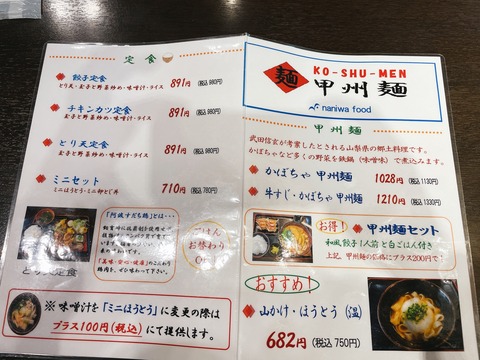 定食
餃子定食 891円(税込 980円)
とり天・玉子と野菜炒め・味噌汁・ライス
チキンカツ定食 891円(税込 980円)
玉子と野菜炒め・味噌汁・ライス
とり天定食 891円(税込 980円)
玉子と野菜炒め・味噌汁・ライス
ミニセット 710円(税込 780円)
ミニほうとう・ミニ卵とじ丼
「阿波すだち鶏」とは・・・
「美味・安心・健康」
ごはん
お替わり
とり天定食
※味噌汁を「ミニほうとう」に変更の際は
プラス100円(税込)にて提供します。
麺
KO-SHU-MEN
甲州麺
naniwa food
甲州麺
武田信玄が考案したとされる山梨県の郷土料理です。
かぼちゃなど多くの野菜を鉄鍋(味噌味)で煮込みます。
かぼちゃ 甲州麺 1028円(税込 1130円)
牛すじ・かぼちゃ 甲州麺 1210円(税込 1330円)
お得!
甲州麺セット
和風餃子1人前と白ごはん付き
上記 甲州麺の価格にプラス200円で!
おすすめ!
山かけ・ほうとう(温)
682円(税込 750円)